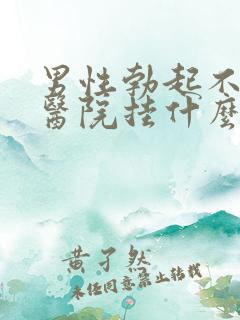 男性勃起不
醫院挂什麼
黄子然
未经同意禁止转载